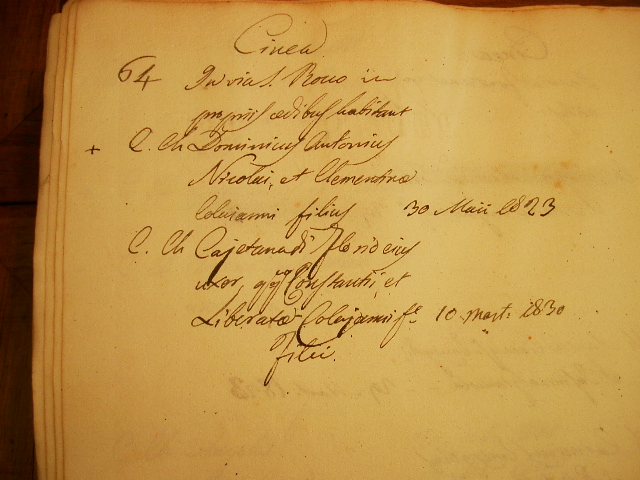 Cinea
64 In via S. Rocco in
propriis ædibus habitant
+ C. Ch Dominicus Antonius
Nicolai, et Clementinæ
Colaianni filius 30 Maii 1823
C. Ch Cajetana di
uxor, qq Constantii, et
Liberatæ Colajanni fe 10 mart: 1830
filii.